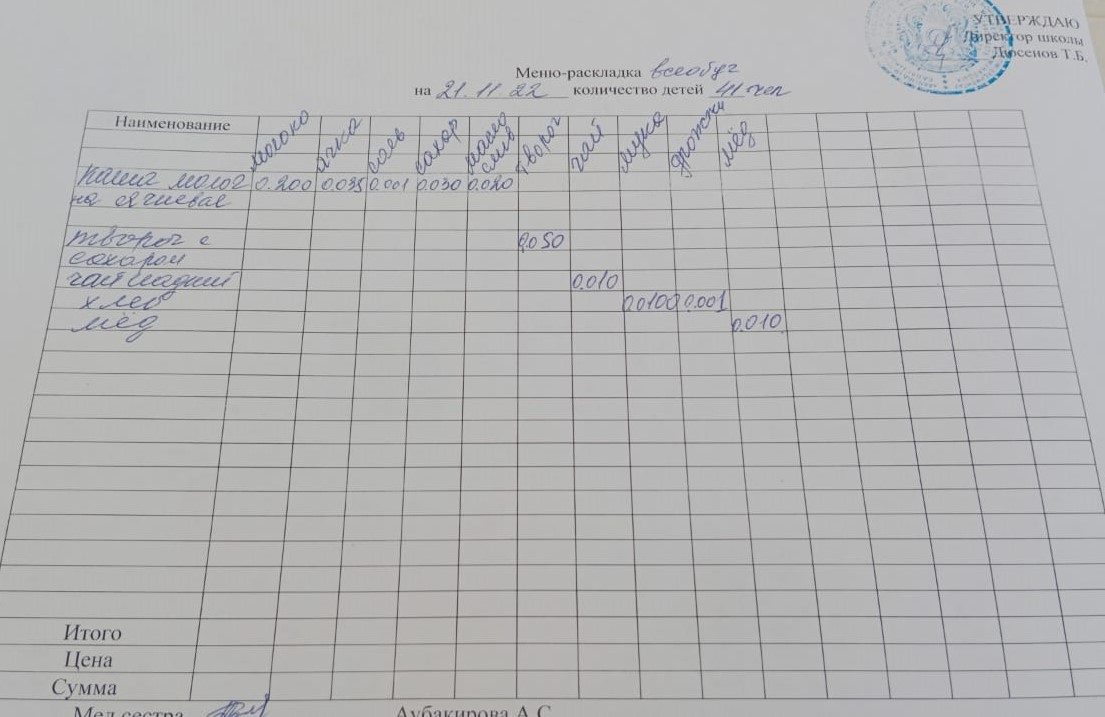 УТВЕРЖДАЮ
Директор школы
Дюсенов Т.Б.
Меню-раскладка всеобуч
на 21.11 22 количество детей 41 чел
Наименование молоко ячка соль сахар масло слив творог чай мука дрожжи мёд
каша молоч 0.200 0.035 0.001 0.030 0.020
ная ячневая
творог с 0.050
сахаром
чай сладкий 0.010
хлеб 0.0100 0.001
мёд 0.010
Итого
Цена
Сумма
Мед.сестра Аубакирова А.С.